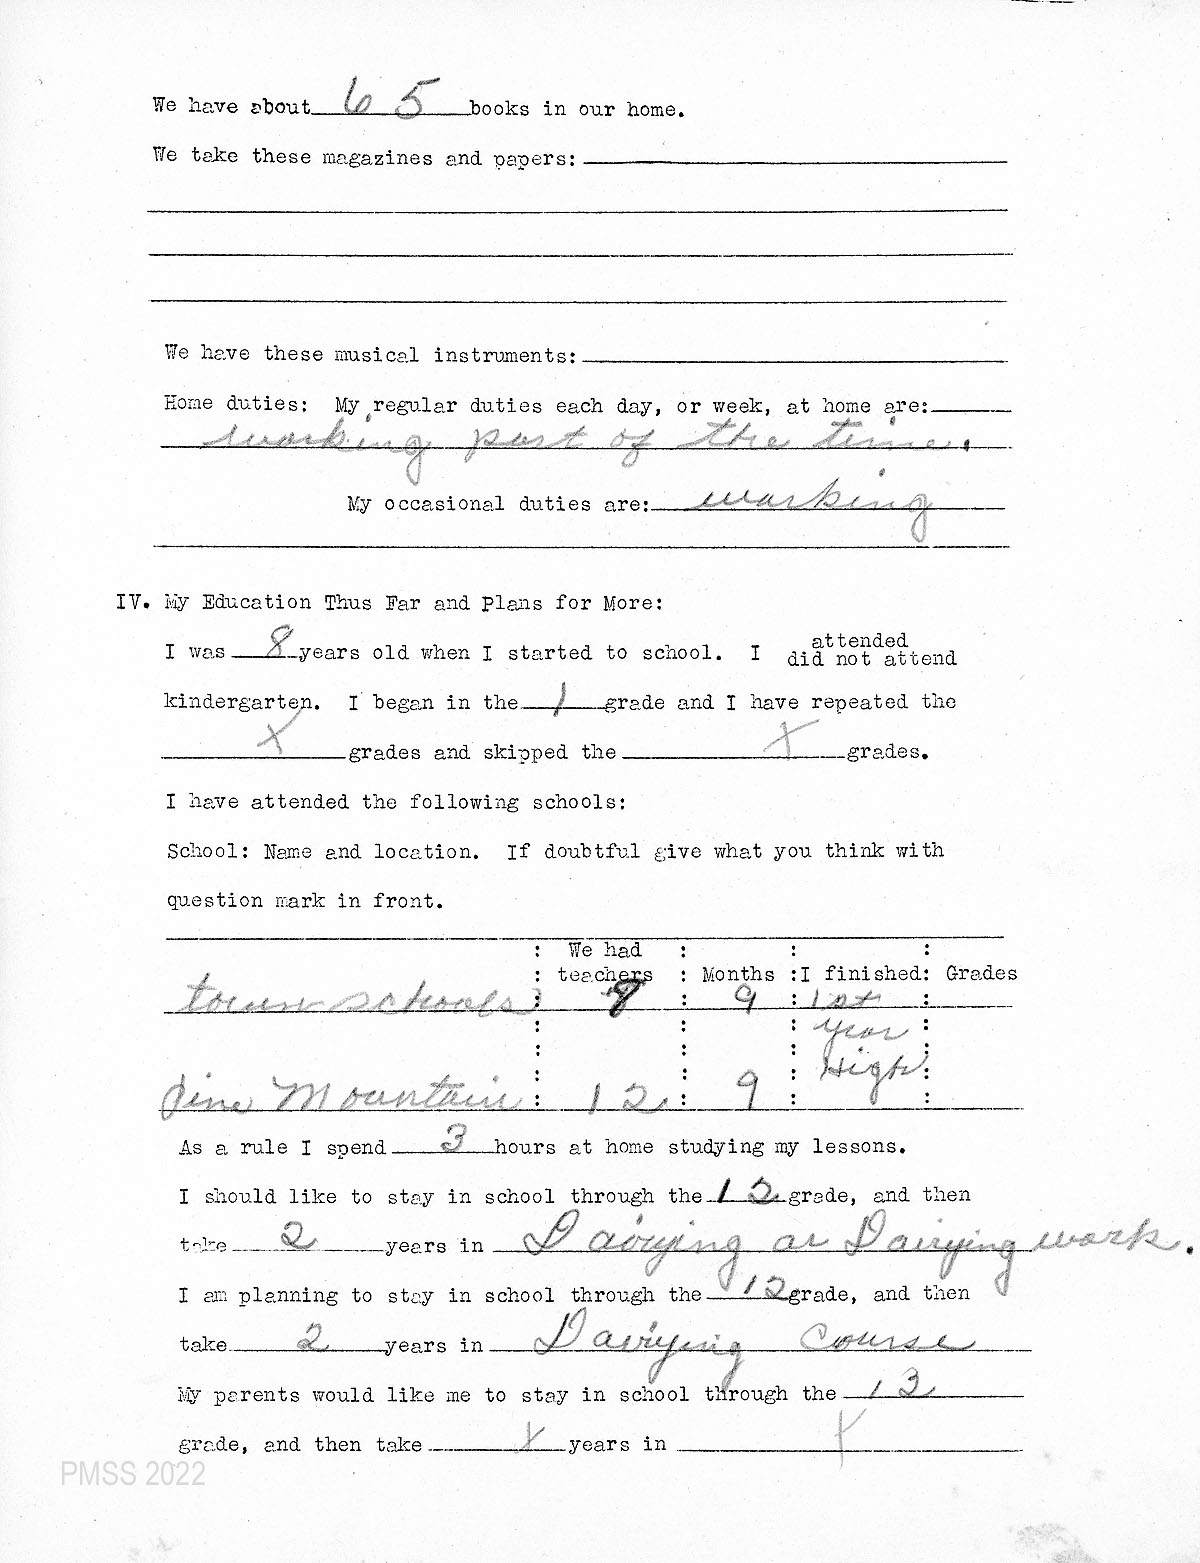 We have about 65 books in our home.
We take these magazines and papers:
We have these musical instruments:
Home duties: My regular duties each day, or week, at home are:
working part of the time.
My occasional duties are: working
IV. My Education Thus Far and Plans for More:
attended
I was 8 years old when I started to school. I did not attend
kindergarten. I began in the 1 grade and I have repeated the
X grades and skipped the X grades.
I have attended the following schools:
School: Name and location. If doubtful give what you think with
question mark in front.
: We had : : :
: teachers : Months :I finished: Grades
town schools : 8 : 9 : 1st :
: : : year :
: : : High :
Pine Mountain : 12 : 9 : :
As a rule I spend 3 hours at home studying my lessons.
I should like to stay in school through the 12 grade, and then
take 2 years in Dairying or Dairying work.
I am planning to stay in school through the 12 grade, and then
take 2 years in Dairying Course
My parents would like me to stay in school through the 12
grade, and then take X years in X
PMSS 2022